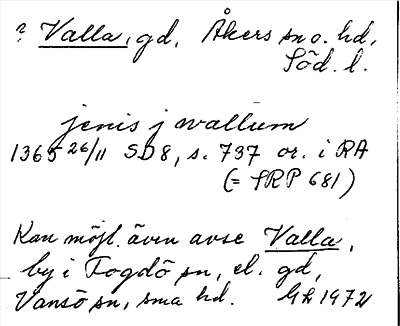 ? Valla, gd, Åkers sn o. hd,
Söd. l.
jenis j wallum
1365 26/11 SD 8, s. 737 or. i RA
(= SRP 681)
Kan möjl. även avse Valla,
by i Fogdö sn, el. gd,
Vansö sn, sma hd. GL 1972